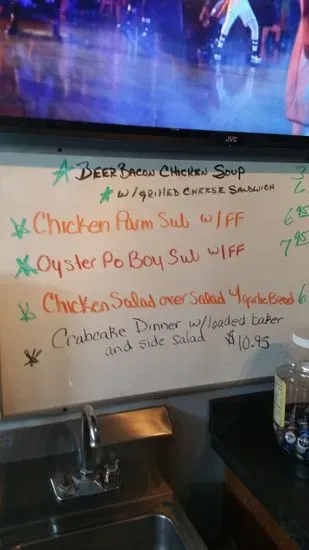 JVC
BEER BACON CHICKEN SOUP 3
W/GRILLED CHEESE SANDWICH 6
Chicken Parm Sub w/FF 6.95
Oyster Po Boy Sub w/FF 7.95
Chicken Salad over Salad w/garlic Bread 6
Crabcake Dinner w/loaded baker
and side salad $10.95